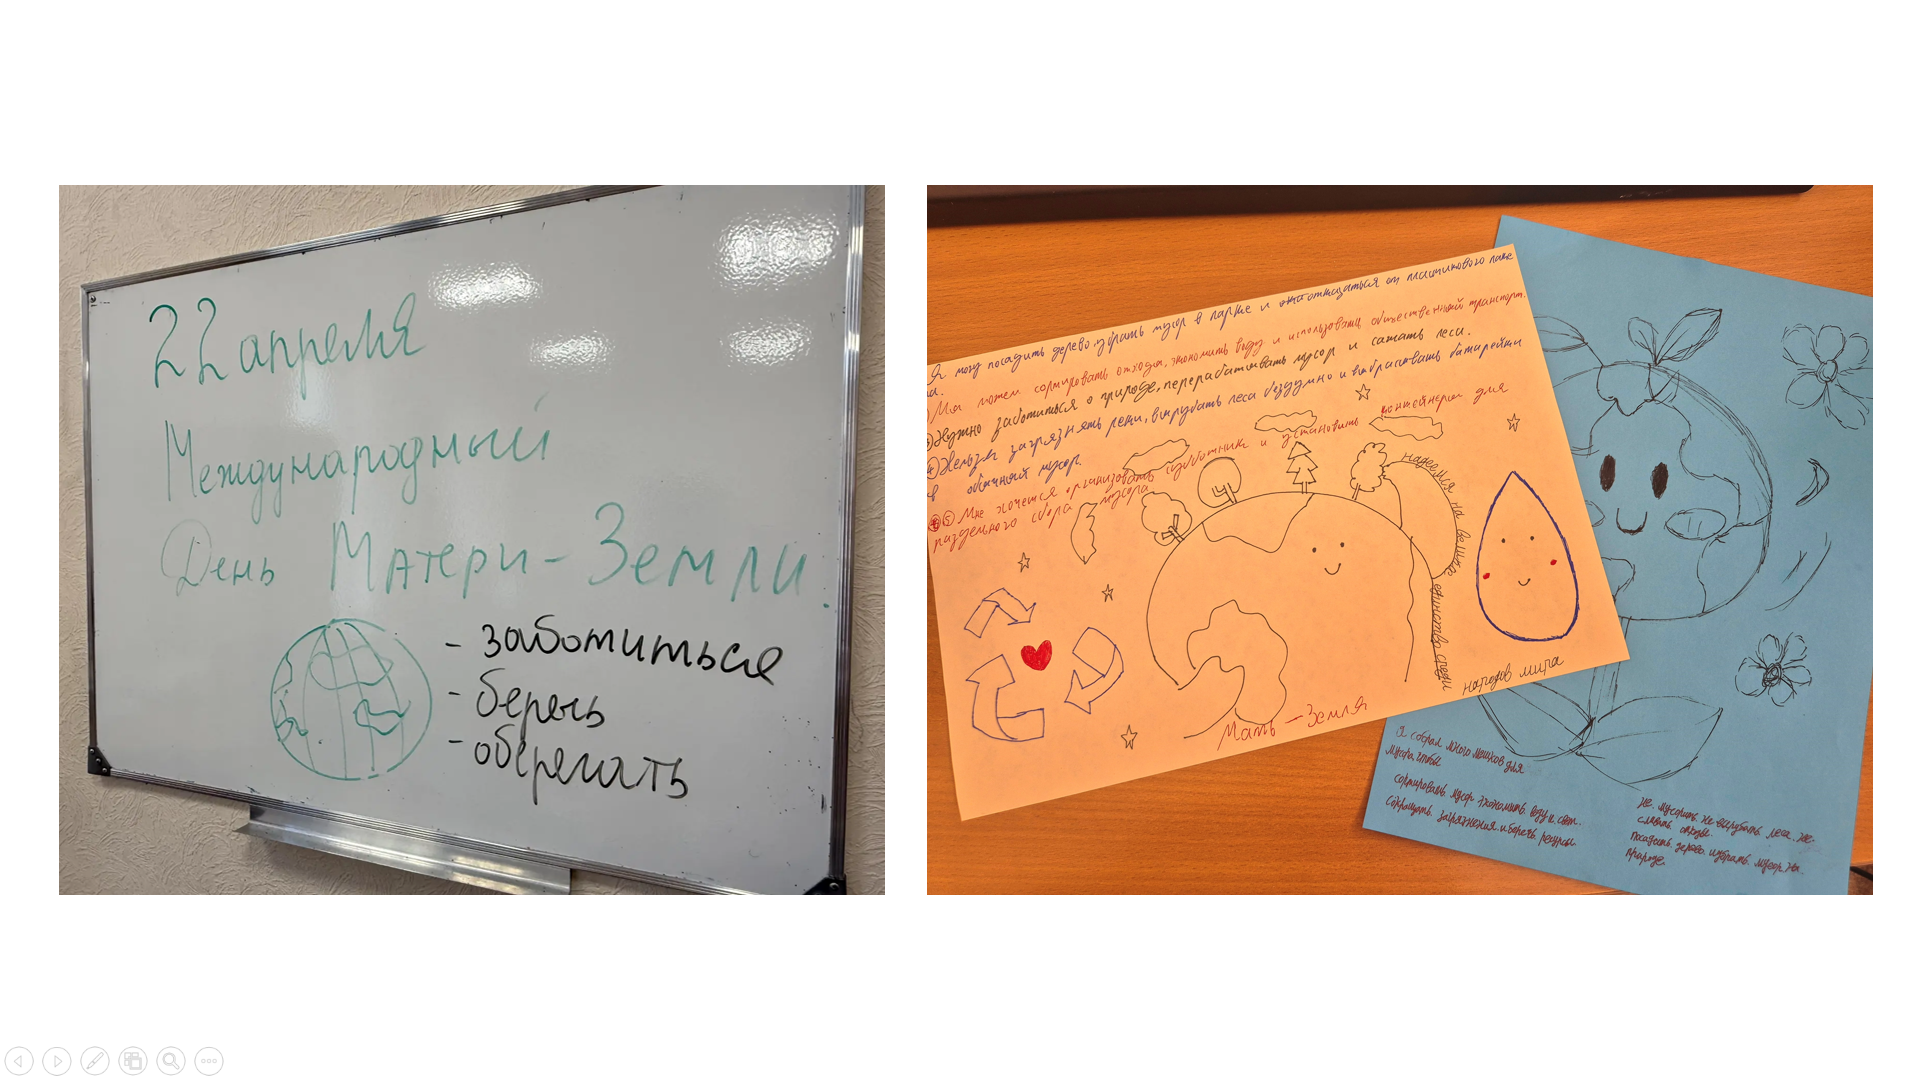 22 апреля
Международный
День Матери-Земли.
- заботиться
- беречь
- оберегать
Я могу посадить дерево, убрать мусор в парке и отказаться от пластикового паке
та.
Мы можем сортировать отходы, экономить воду и использовать общественный транспорт.
3) Нужно заботиться о природе, перерабатывать мусор и сажать леса.
4) Нельзя загрязнять реки, вырубать леса бездумно и выбрасывать батарейки
в обычный мусор.
5) Мне хочется организовать субботник и установить контейнеры для
раздельного сбора мусора
надеемся на великое единство среди
народов мира
Мать-Земля
Я собрал много мешков для
мусора чтобы
сортировать мусор экономить воду и свет.
сокращать загрязнения и беречь ресурсы.
не мусорить. не вырубать леса. не
сливать отходы.
посадить дерево. избрать мусор на
природе.